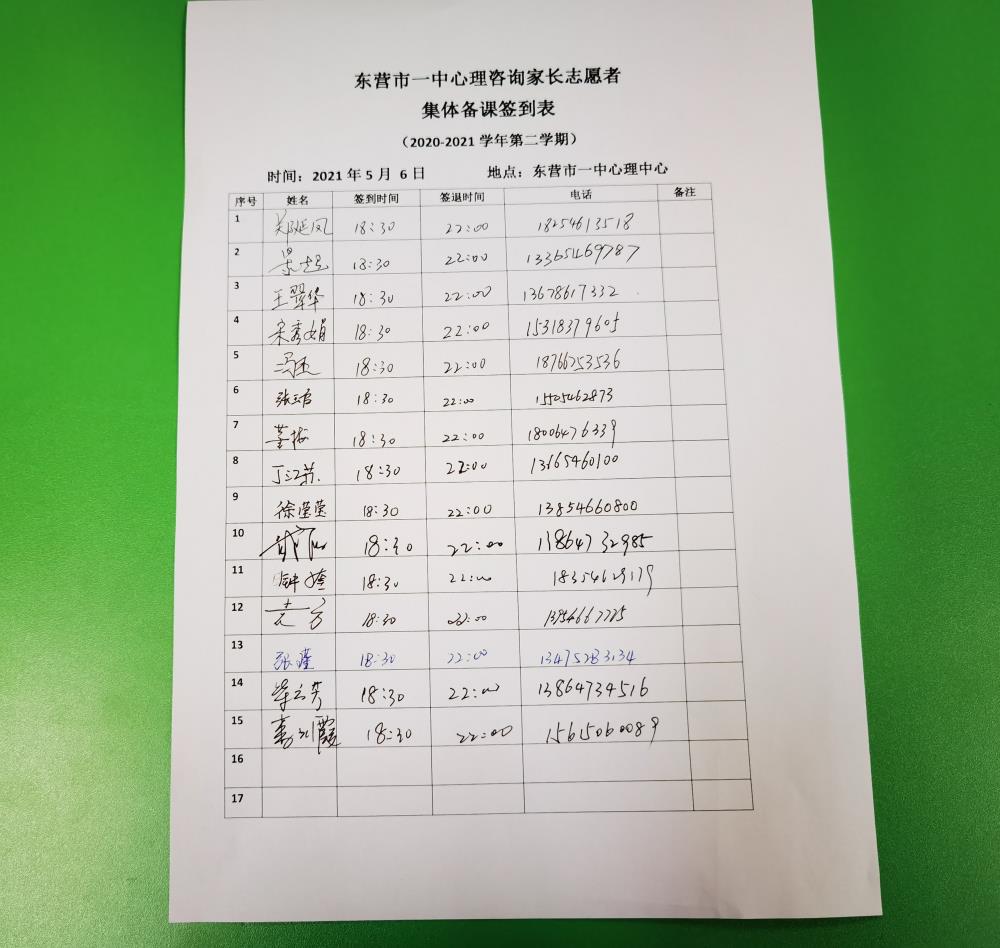 东营市一中心理咨询家长志愿者
集体备课签到表
（2020-2021 学年第二学期）
时间：2021 年 5 月 6 日 地点：东营市一中心理中心
序号 姓名 签到时间 签退时间 电话 备注
1 郑延凤 18:30 22:00 18254613518
2 18:30 22:00 13365469787
3 王翠华 18:30 22:00 13678617332
4 宋秀娟 18:30 22:00 15318379605
5 冯玉 18:30 22:00 18766253536
6 18:30 22:00 15505462873
7 董梅 18:30 22:00 18006476339
8 丁江苏 18:30 22:00 13665460100
9 徐莹莹 18:30 22:00 13854660800
10 18:30 22:00 13864732985
11 18:30 22:00 18354629179
12 18:30 22:00
13 张瑾 18:30 22:00 13475283134
14 18:30 22:00 13864734516
15 18:30 22:00 15615060089
16
17